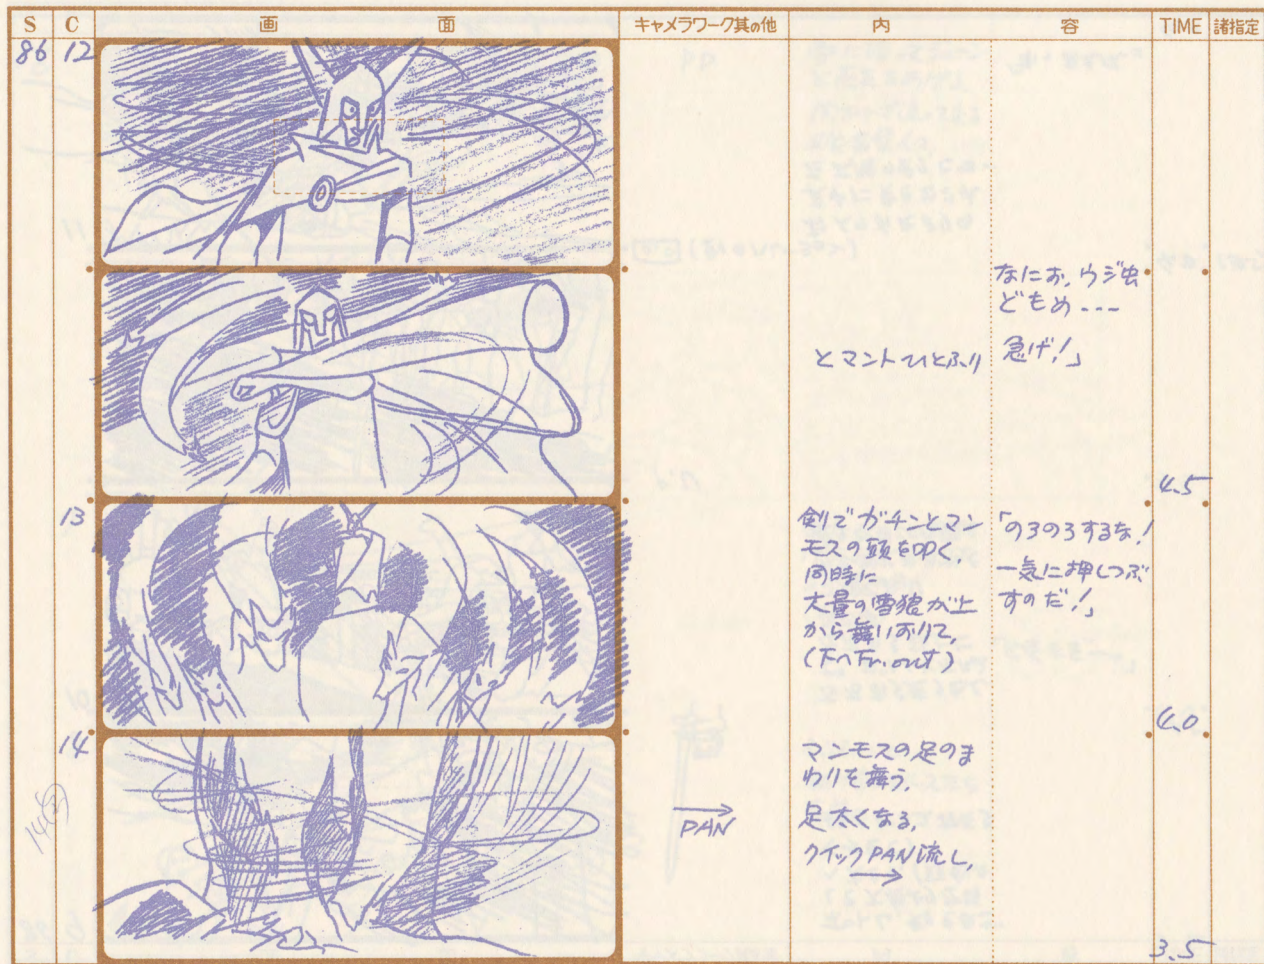 S C 画 面 キャメラワーク其の他 内 容 TIME 諸指定
86 12
なにお、ウジ虫
どもめ---
急げ!」
とマントひとふり
4.5
13
剣でガチンとマン
モスの頭を叩く、
同時に
大量の雪狼が上
から舞いおりて、
(下へFr.out)
「のろのろするな!
一気に押しつぶ
すのだ!」
4.0
14
PAN
マンモスの足のま
わりを舞う、
足太くなる、
クイックPAN流し、
3.5